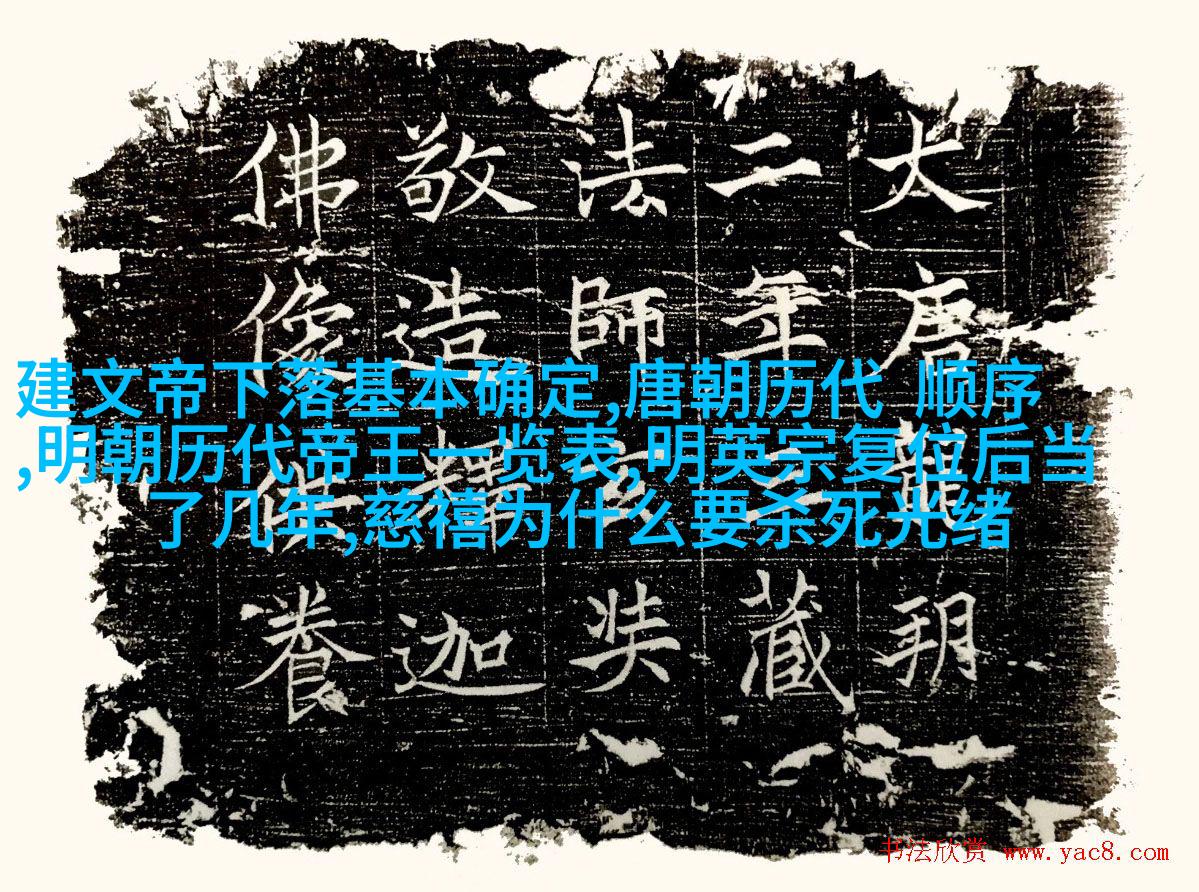 大唐龍朔
二年三藏
法師玄奘
敬造釋迦
佛像供養
建文帝下落基本确定,唐朝历代 顺序
,明朝历代帝王一览表,明英宗复位后当
了几年,慈禧为什么要杀死光绪
书法欣赏 www.yac8.com